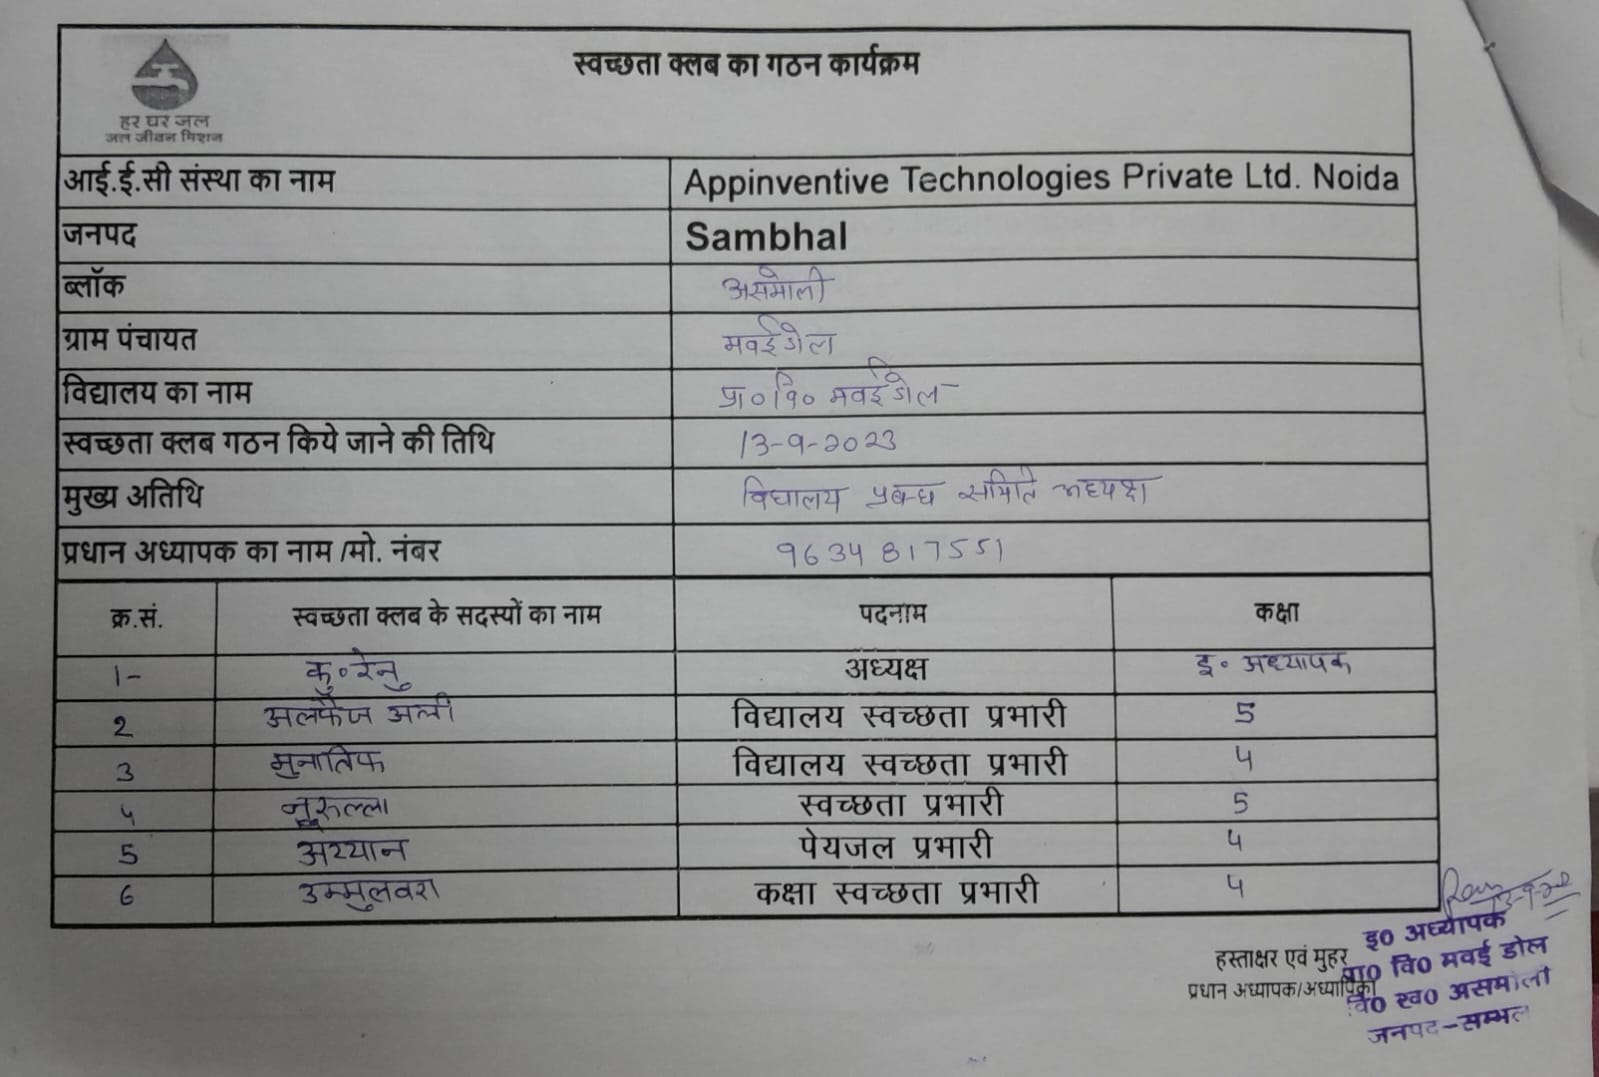 स्वच्छता क्लब का गठन कार्यक्रम
हर घर जल
जल जीवन मिशन
आई.ई.सी संस्था का नाम Appinventive Technologies Private Ltd. Noida
जनपद Sambhal
ब्लॉक असमोली
ग्राम पंचायत मवईडोल
विद्यालय का नाम प्रा०वि० मवईडोल
स्वच्छता क्लब गठन किये जाने की तिथि 13-9-2023
मुख्य अतिथि विद्यालय प्रबन्ध समिति अध्यक्ष
प्रधान अध्यापक का नाम /मो. नंबर 9634817551
क्र.सं. स्वच्छता क्लब के सदस्यों का नाम पदनाम कक्षा
1- कु०रेनु अध्यक्ष इ० अध्यापक
2 अलफैज अली विद्यालय स्वच्छता प्रभारी 5
3 मुनातिफ विद्यालय स्वच्छता प्रभारी 4
4 नूरुल्ला स्वच्छता प्रभारी 5
5 अय्यान पेयजल प्रभारी 4
6 उम्मुलवरा कक्षा स्वच्छता प्रभारी 4
हस्ताक्षर एवं मुहर
प्रधान अध्यापक/अध्यापिका
इ0 अध्यापक
प्रा0 वि0 मवई डोल
वि0 ख0 असमोली
जनपद-सम्भल